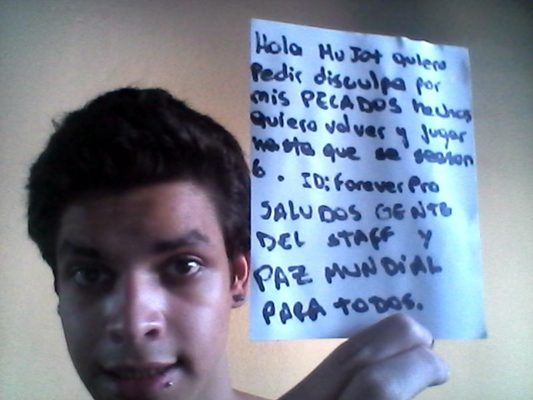 Hola MuJot quiero
Pedir disculpa por
mis PECADOS hechos
quiero volver y jugar
hasta que se season
6. ID: ForeverPro
SALUDOS GENTE
DEL STAFF Y
PAZ MUNDIAL
PARA TODOS.